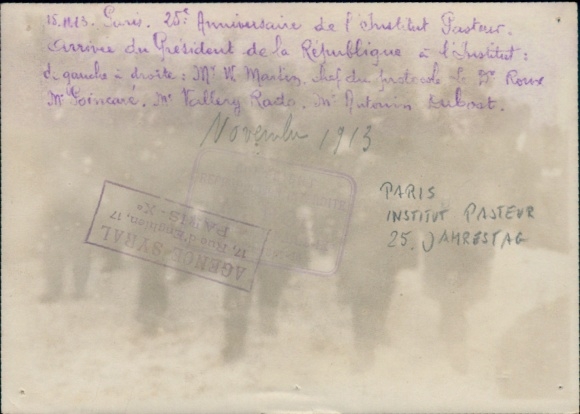 15.11.13. Paris. 25e Anniversaire de l'Institut Pasteur.
Arrivée du Président de la République à l'Institut:
de gauche à droite: Mr W Martin, chef du protocole - le Dr Roux
Mr Poincaré. Mr Vallery Rado. Mr Antonin Dubost.
Novembre 1913
PARIS
INSTITUT PASTEUR
25. JAHRESTAG
AGENCE SYRAL
17, Rue d'Enghien, 17
PARIS-Xe